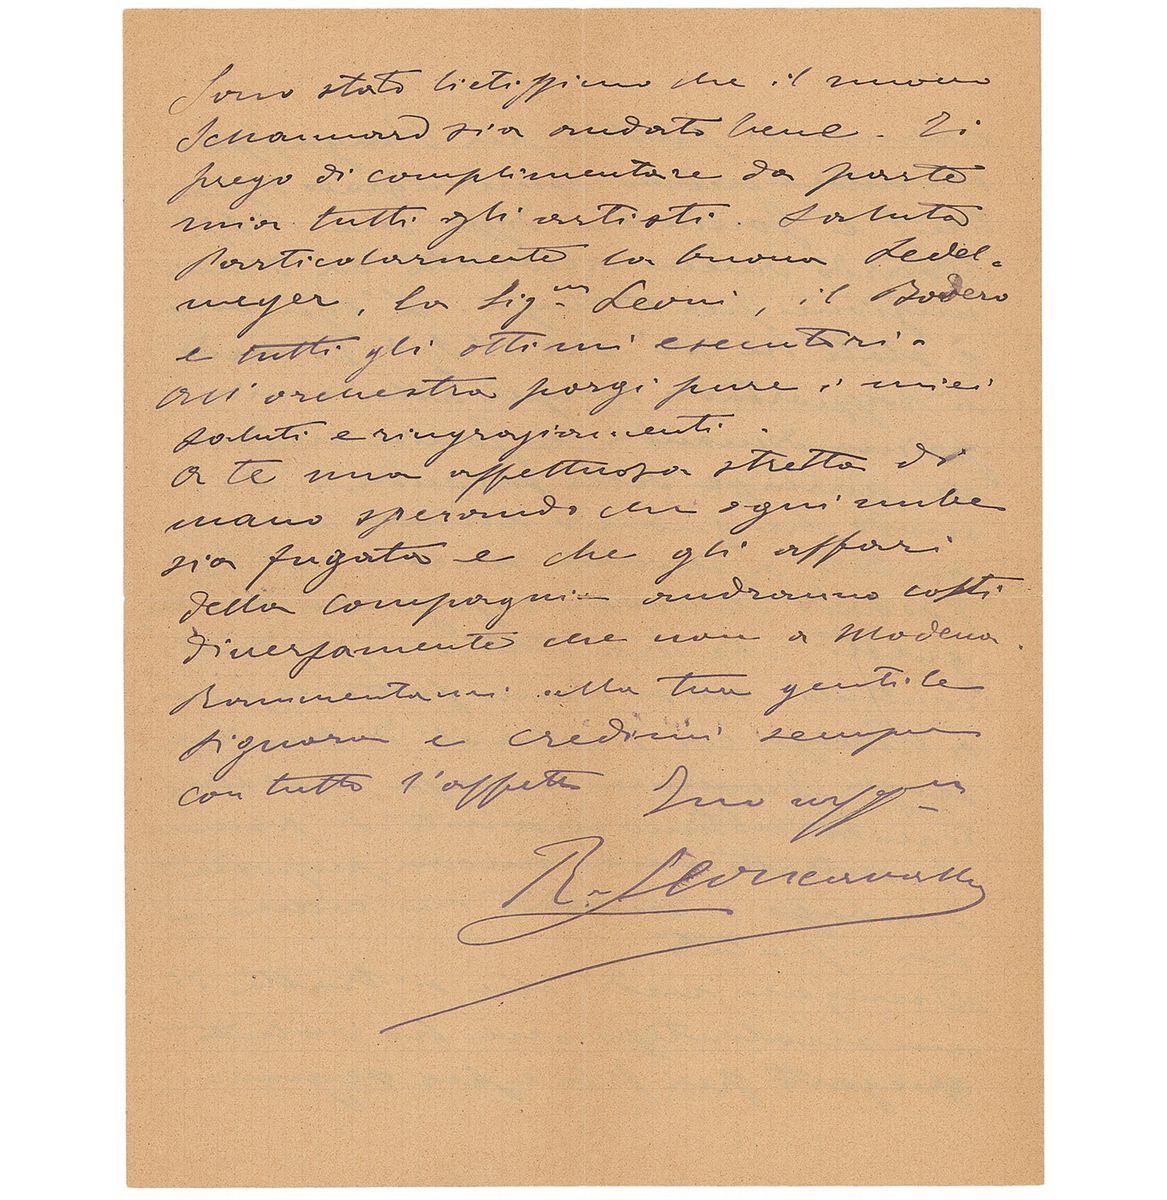 Sono stato lietissimo che il nuovo
Schaunard sia andato bene. Ti
prego di complimentare da parte
mia tutti gli artisti. Saluta
particolarmente la buona Sedel-
meyer, la Sig.na Leoni, il Bodero
e tutti gli ottimi esecutori.
All'orchestra porgi pure i miei
saluti e ringraziamenti.
A te una affettuosa stretta di
mano sperando che ogni nube
sia fugata e che gli affari
della compagnia andranno costì
diversamente che non a Modena.
Rammentami alla tua gentile
signora e credimi sempre
con tutto l'affetto Tuo aff.mo
R. Leoncavallo